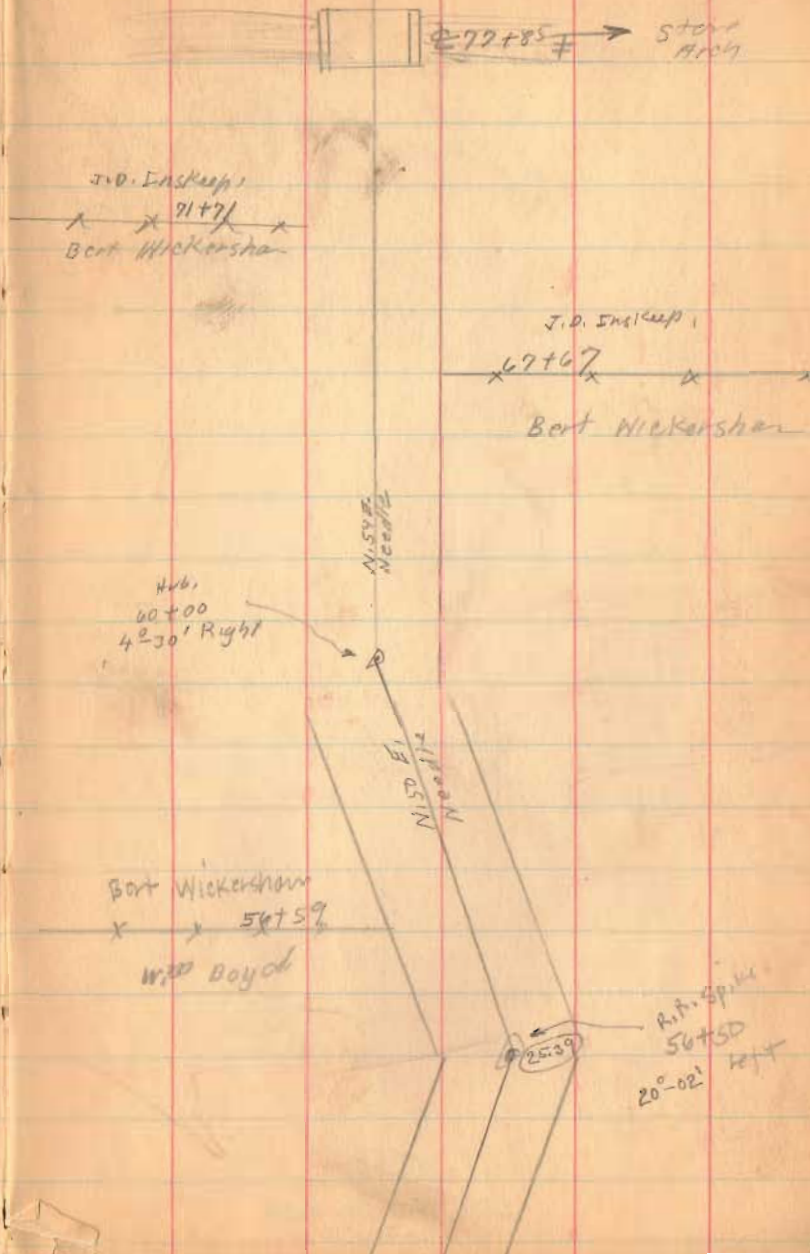 ℄ 77+85 Stone
Arch
J.D. Inskeep,
71+71
Bert Wickersham
J.D. Inskeep,
67+67
Bert Wickersham
N.54E.
Needle
Hub,
60+00
4°-30' Right
N.50 E.
Needle
Bert Wickersham
56+59
Will Boyd
R.R. Spike
56+50
20°-02' Left
25.39